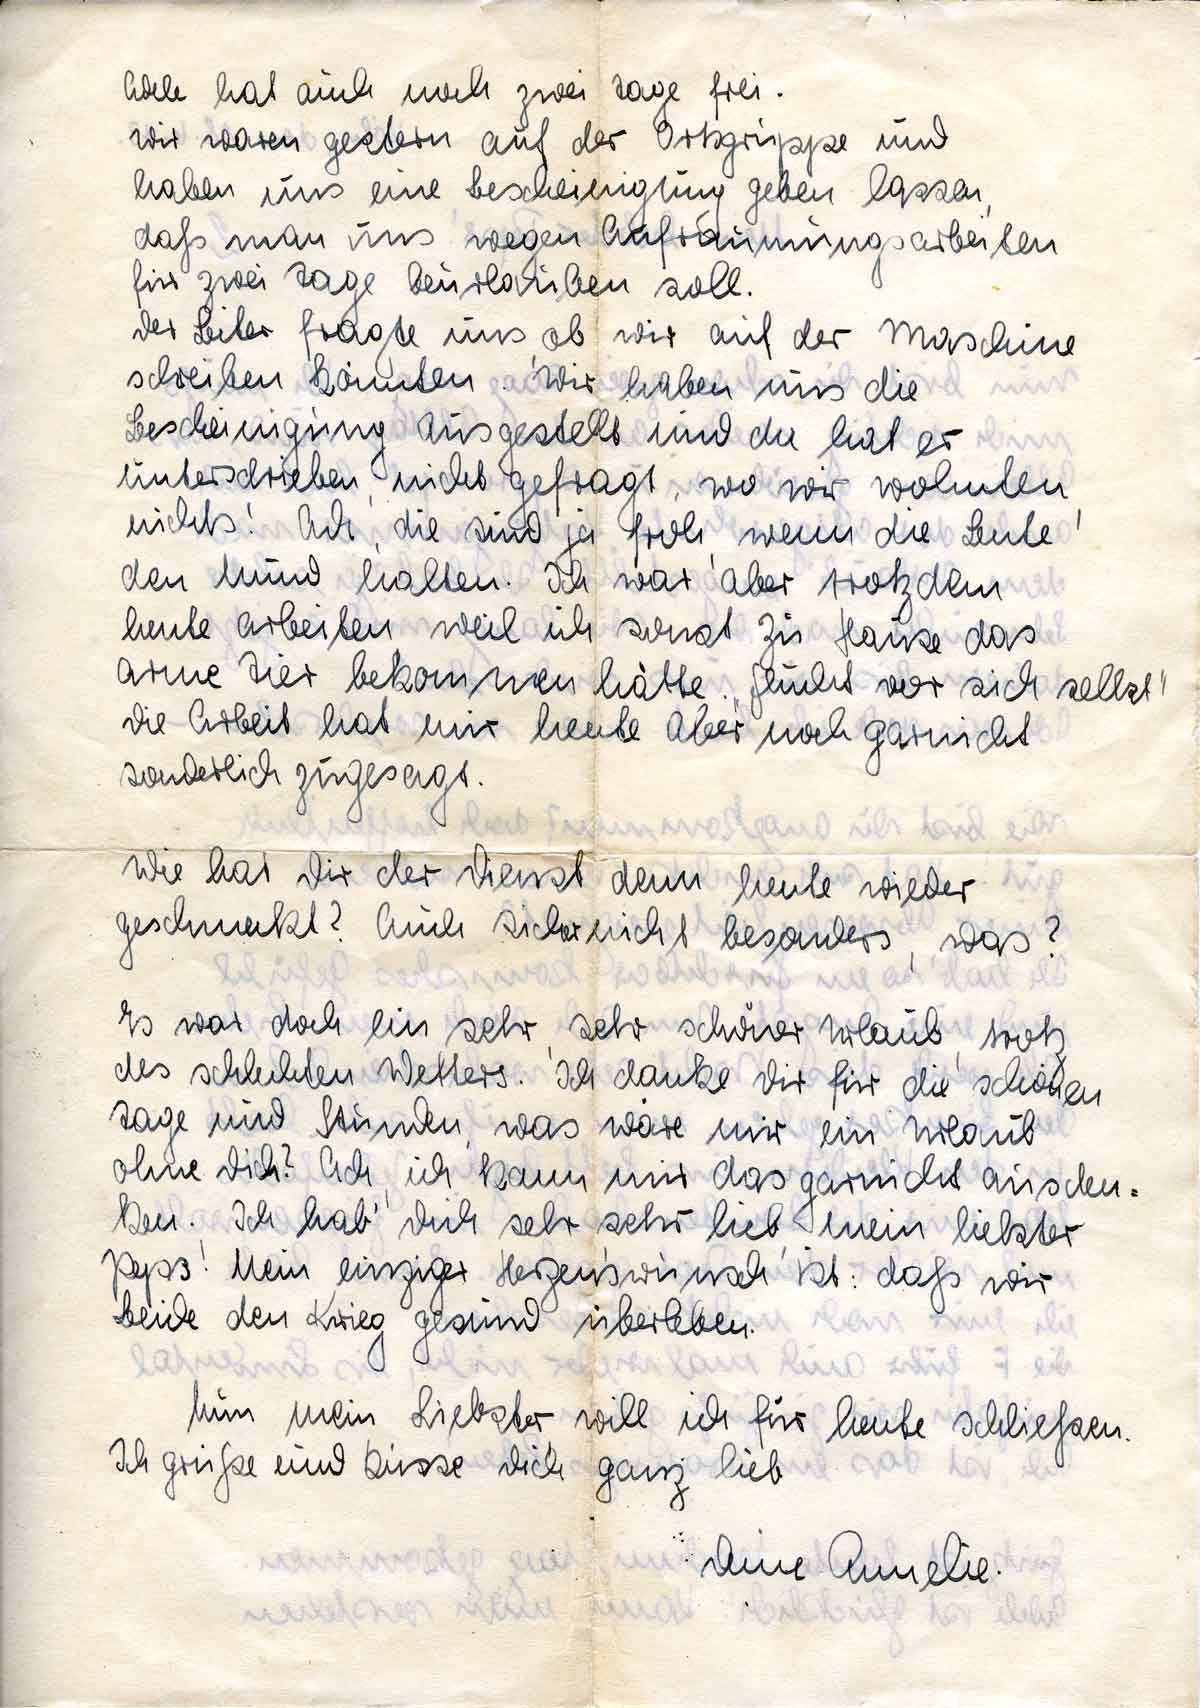 Adele hat auch noch zwei Tage frei.
Wir waren gestern auf der Ortsgruppe und
haben uns eine Bescheinigung geben lassen,
daß man uns wegen Aufräumungsarbeiten
für zwei Tage beurlauben soll.
Der Leiter fragte uns ob wir auf der Maschine
schreiben könnten. Wir haben uns die
Bescheinigung ausgestellt und da hat er
unterschrieben, nicht gefragt, wo wir wohnten
nichts! Ach, die sind ja froh, wenn die Leute
den Mund halten. Ich war aber trotzdem
heute arbeiten weil ich sonst zu Hause das
arme Tier bekommen hätte. Flucht vor sich selbst!
Die Arbeit hat mir heute aber noch garnicht
sonderlich zugesagt.
Wie hat Dir der Dienst denn heute wieder
geschmeckt? Auch sicher nicht besonders, was?
Es war doch ein sehr, sehr schöner Urlaub, trotz
des schlechten Wetters. Ich danke Dir für die schönen
Tage und Stunden, was wäre mir ein Urlaub
ohne Dich? Ach, ich kann mir das garnicht ausden=
ken. Ich hab' Dich sehr sehr lieb mein liebster
Peps! Mein einziger Herzenswunsch ist: daß wir
beide den Krieg gesund überleben.
Nun mein Liebster will ich für heute schließen.
Ich grüße und küsse Dich ganz lieb
Deine Annelie.